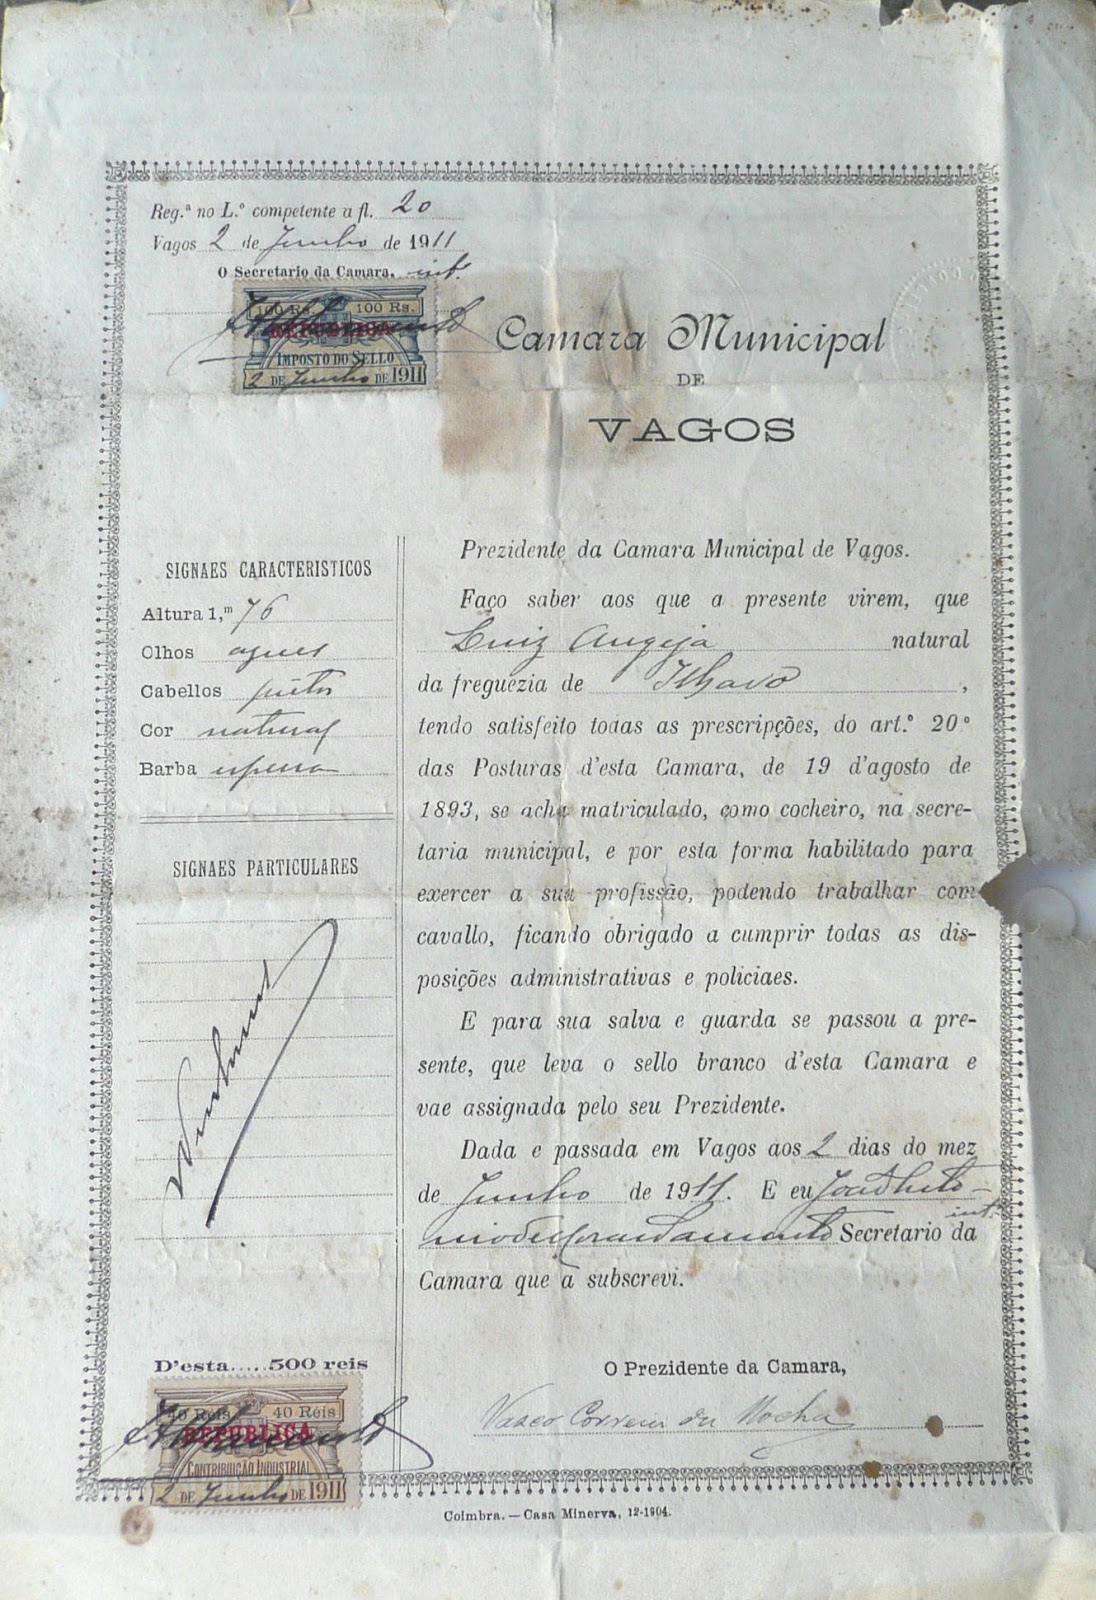 Reg.ª no L.º competente a fl. 20
Vagos 2 de Junho de 1911
O Secretario da Camara, int.º
100 Rs. 100 Rs.
REPUBLICA
IMPOSTO DO SELLO
2 DE Junho DE 1911
Camara Municipal
DE
VAGOS
SIGNAES CARACTERISTICOS
Altura 1,ᵐ 76
Olhos
Cabellos pretos
Cor natural
Barba
SIGNAES PARTICULARES
Nenhuns
D'esta.....500 reis
40 Reis 40 Reis
REPUBLICA
CONTRIBUIÇÃO INDUSTRIAL
2 DE Junho DE 1911
Prezidente da Camara Municipal de Vagos.
Faço saber aos que a presente virem, que
Luiz Angeja natural
da freguezia de Ilhavo,
tendo satisfeito todas as prescripções, do art.º 20º
das Posturas d'esta Camara, de 19 d'agosto de
1893, se acha matriculado, como cocheiro, na secre-
taria municipal, e por esta forma habilitado para
exercer a sua profissão, podendo trabalhar com
cavallo, ficando obrigado a cumprir todas as dis-
posições administrativas e policiaes.
E para sua salva e guarda se passou a pre-
sente, que leva o sello branco d'esta Camara e
vae assignada pelo seu Prezidente.
Dada e passada em Vagos aos 2 dias do mez
de Junho de 1911. E eu
int.º
Secretario da
Camara que a subscrevi.
O Prezidente da Camara,
Vasco Correia da Rocha
Coimbra.—Casa Minerva, 12-1904.